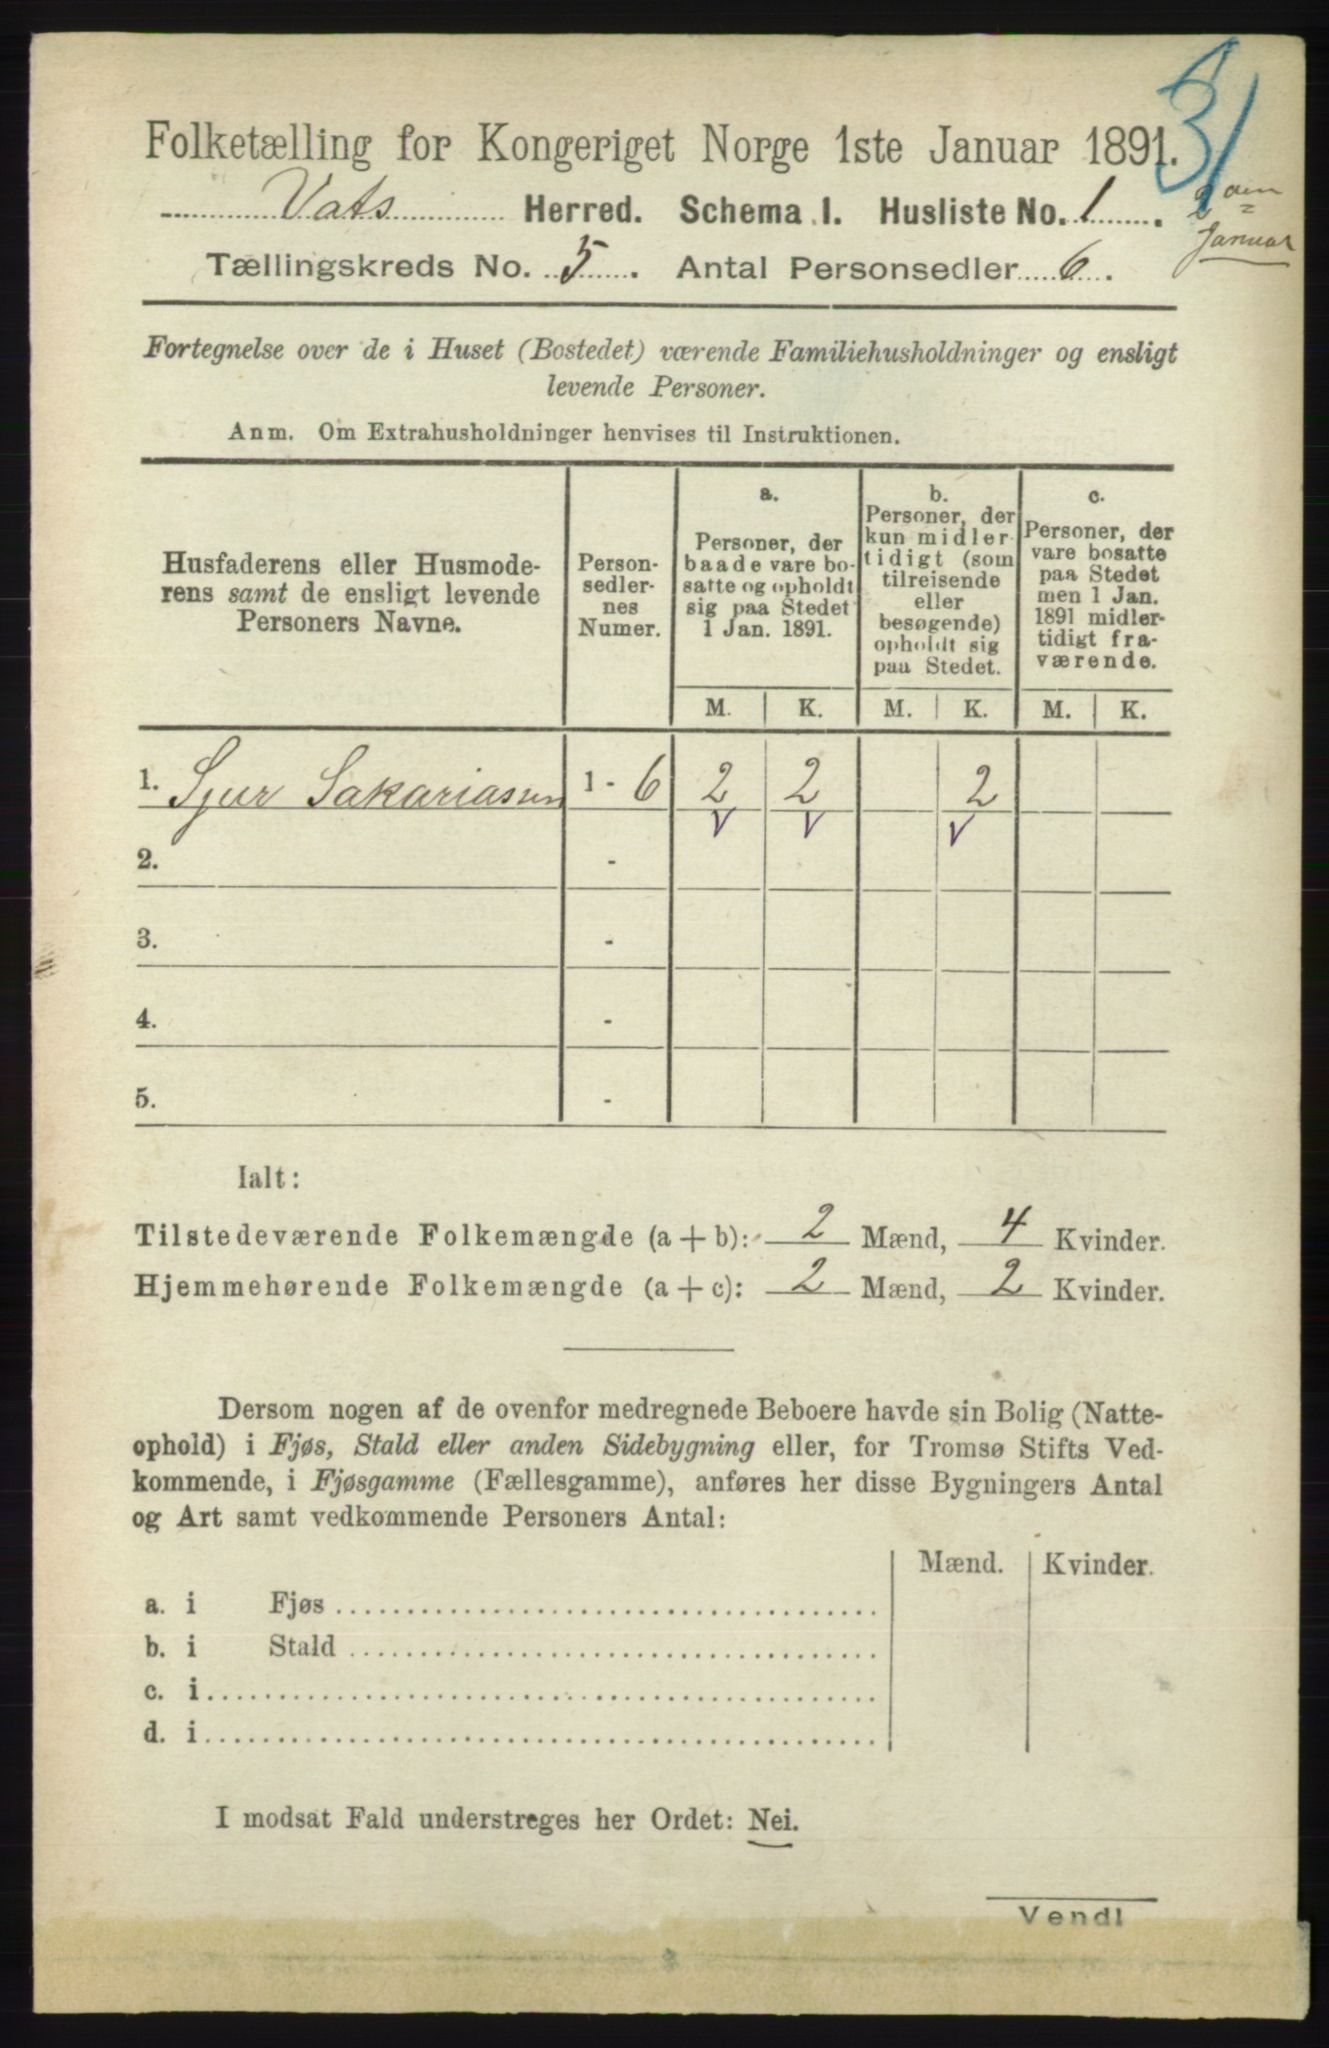 31
Folketælling for Kongeriget Norge 1ste Januar 1891.
Vats Herred. Schema 1. Husliste No. 1.
2den
Januar
Tællingskreds No. 5. Antal Personsedler 6.
Fortegnelse over de i Huset (Bostedet) værende Familiehusholdninger og ensligt
levende Personer.
Anm. Om Extrahusholdninger henvises til Instruktionen.
Husfaderens eller Husmode-
rens samt de ensligt levende
Personers Navne.
Person-
sedler-
nes
Numer.
a.
Personer, der
baade vare bo-
satte og opholdt
sig paa Stedet
1 Jan. 1891.
b.
Personer, der
kun midler
tidigt (som
tilreisende
eller
besøgende)
opholdt sig
paa Stedet.
c.
Personer, der
vare bosatte
paa Stedet
men 1 Jan.
1891 midler-
tidigt fra-
værende.
M. K. M. K. M. K.
1. Sjur Sakariassen 1 - 6 2 2 2
v v v
2. -
3. -
4. -
5. -
Ialt:
Tilstedeværende Folkemængde (a + b): 2 Mænd, 4 Kvinder.
Hjemmehørende Folkemængde (a + c): 2 Mænd, 2 Kvinder.
Dersom nogen af de ovenfor medregnede Beboere havde sin Bolig (Natte-
ophold) i Fjøs, Stald eller anden Sidebygning eller, for Tromsø Stifts Ved-
kommende, i Fjøsgamme (Fællesgamme), anføres her disse Bygningers Antal
og Art samt vedkommende Personers Antal:
Mænd. Kvinder.
a. i Fjøs
b. i Stald
c. i
d. i
I modsat Fald understreges her Ordet: Nei.
Vend!